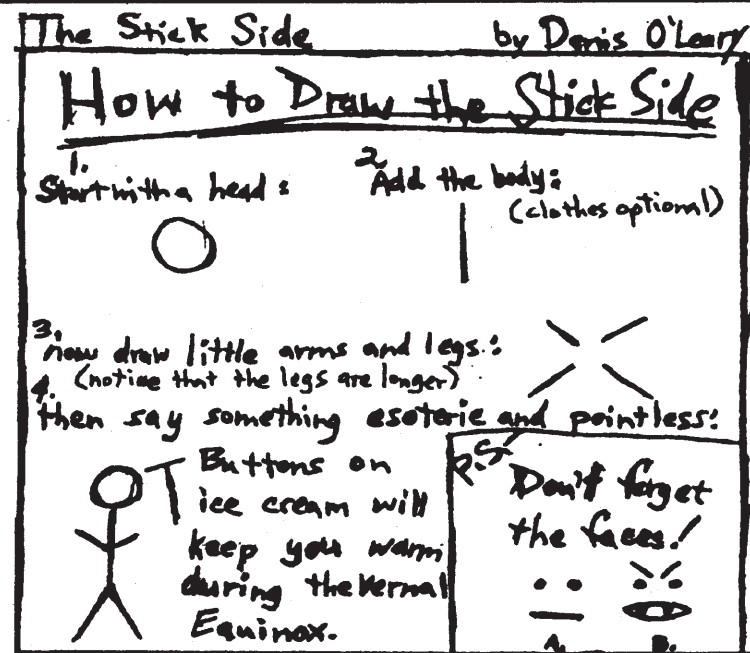 The Stick Side by Denis O'Leary
How to Draw the Stick Side
1.
Start with a head:
2
Add the body:
(clothes optional)
3.
now draw little arms and legs:
(notice that the legs are longer)
4.
then say something esoteric and pointless:
Buttons on
ice cream will
keep you warm
during the Vernal
Equinox.
P.S.
Don't forget
the faces!
A. B.